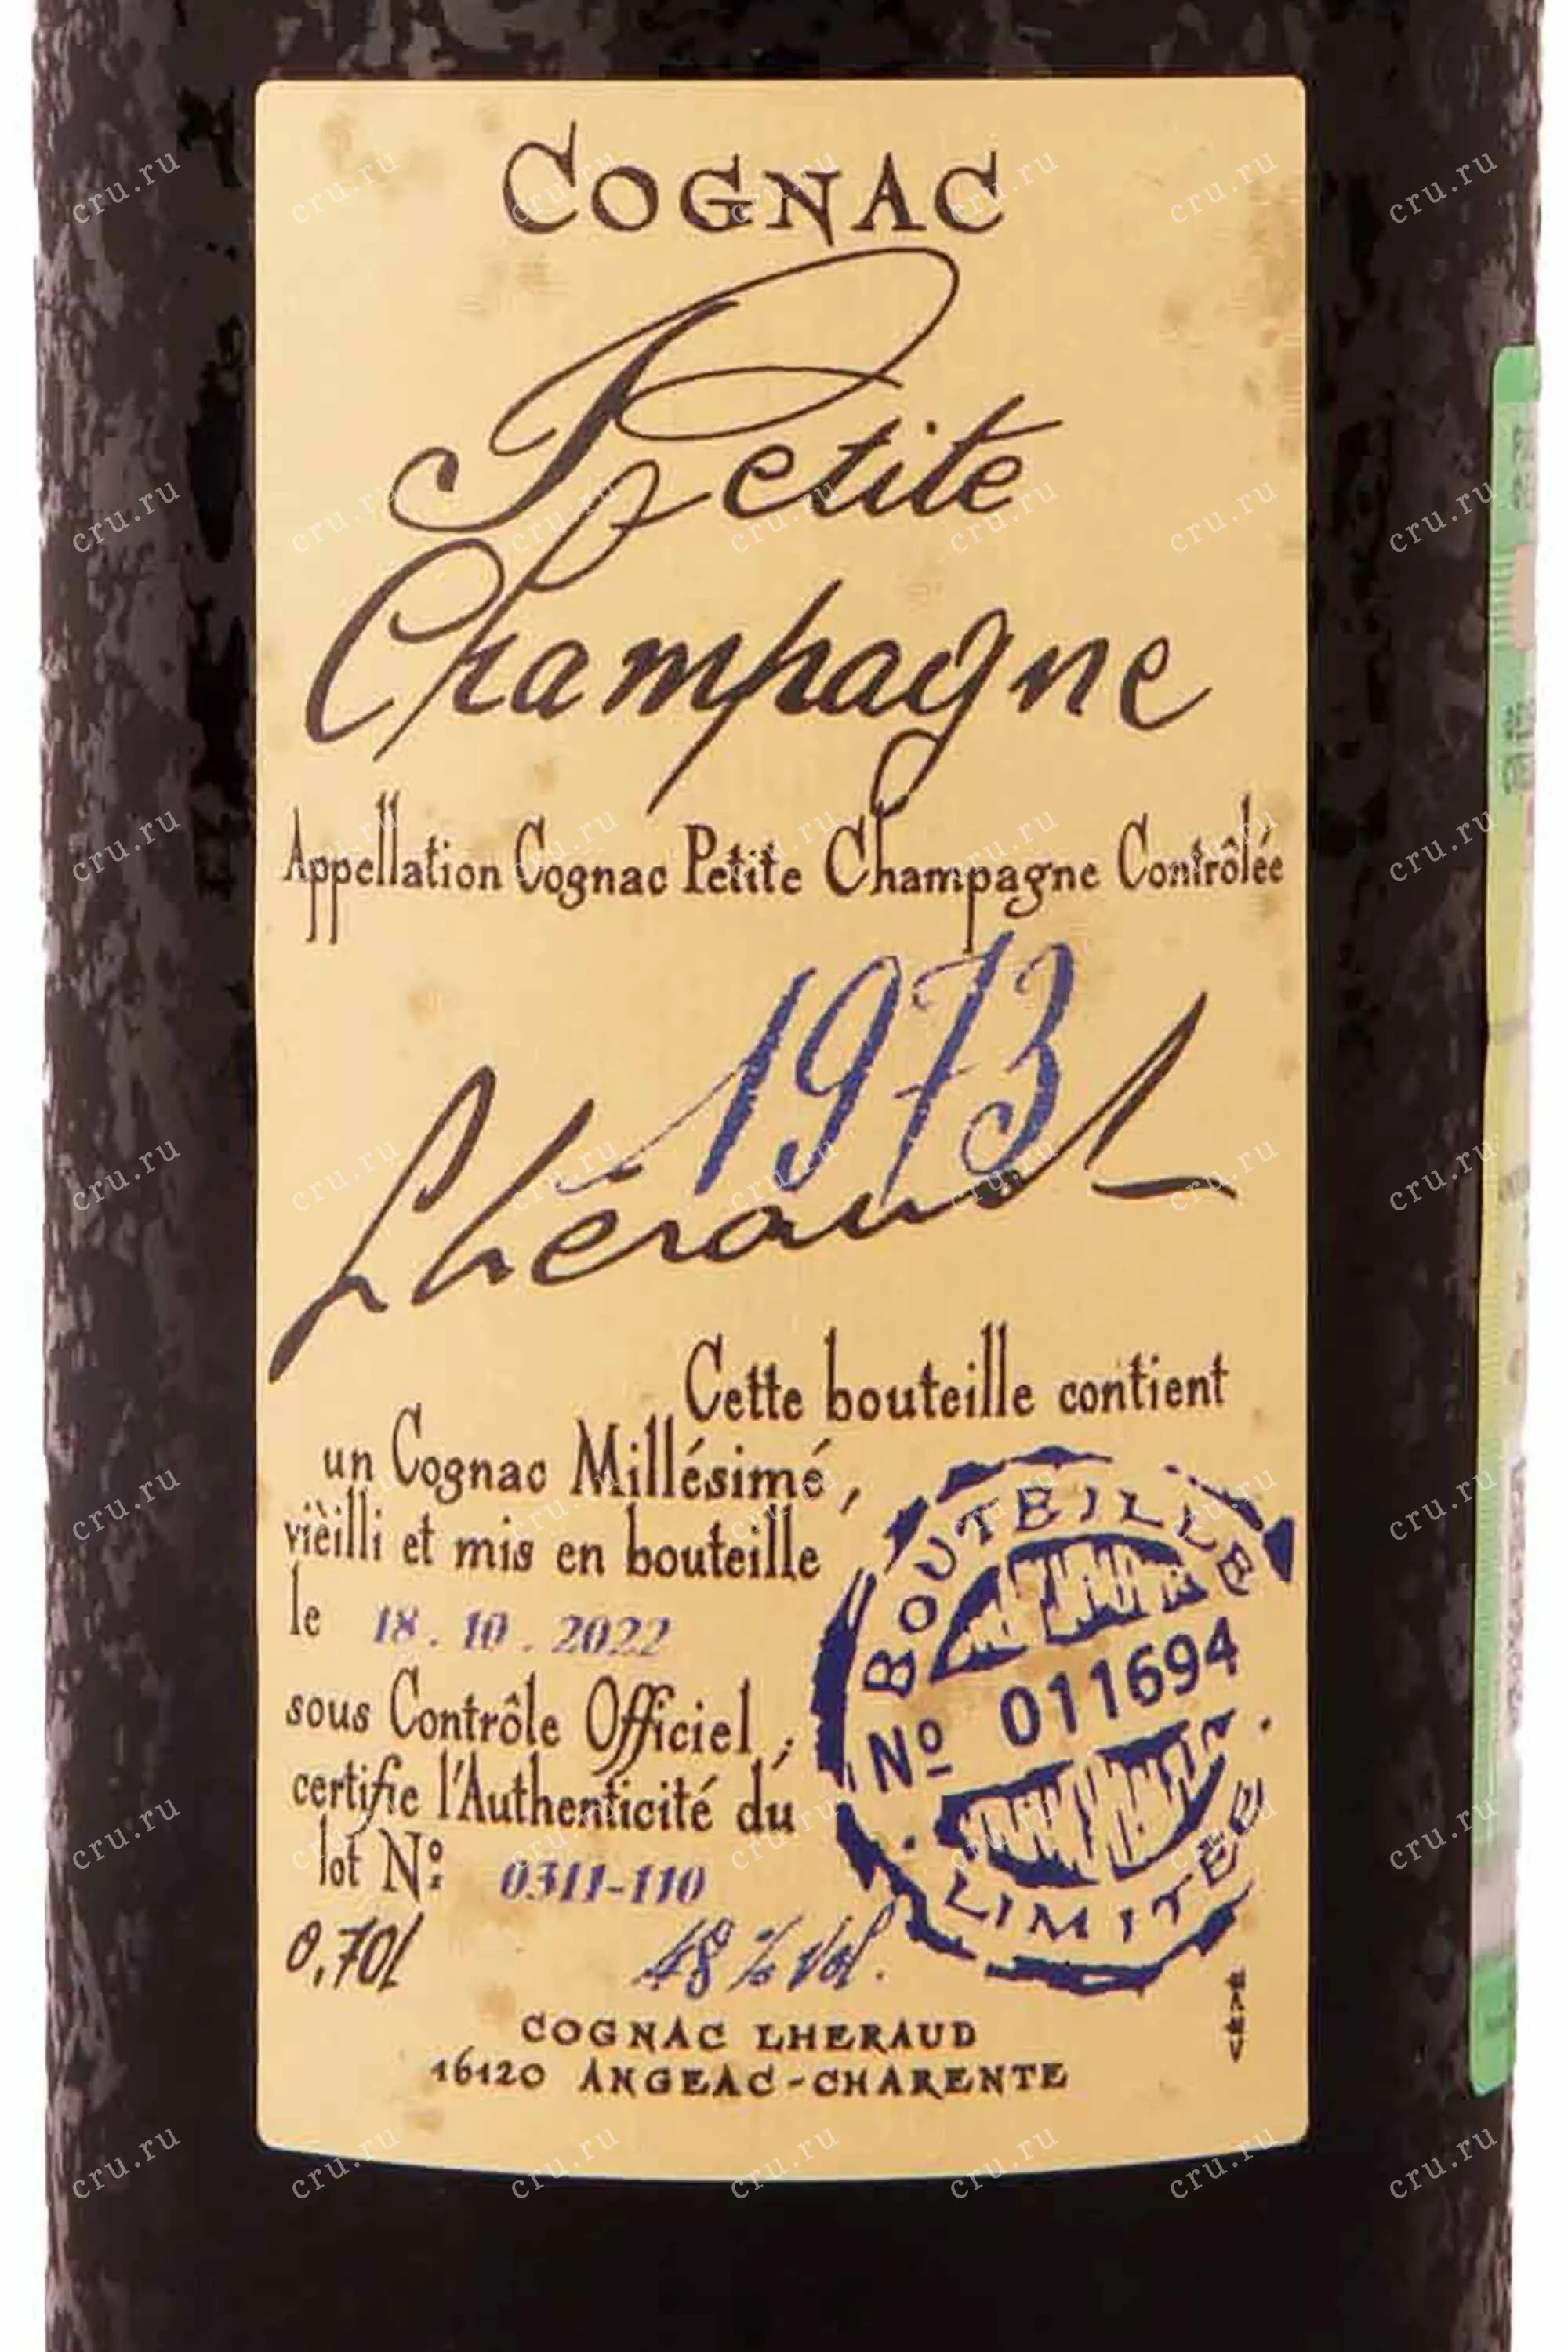 COGNAC
Petite
Champagne
Appellation Cognac Petite Champagne Contrôlée
1973
Lhéraud
Cette bouteille contient
un Cognac Millésimé,
vieilli et mis en bouteille
le 18.10.2022
sous Contrôle Officiel,
certifie l'Authenticité du
lot Nº: 0311-110
BOUTEILLE
Nº 011694
LIMITÉE
0,70l 48% Vol.
COGNAC LHERAUD
16120 ANGEAC-CHARENTE
cru.ru